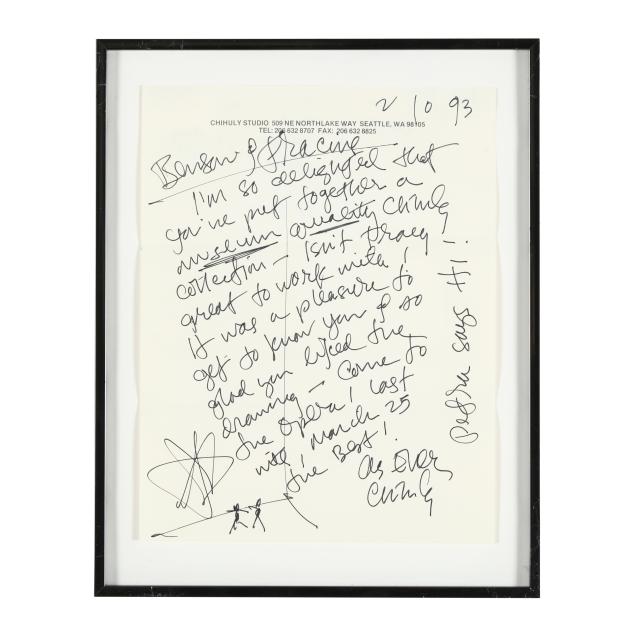 2 10 93
CHIHULY STUDIO 509 NE NORTHLAKE WAY SEATTLE, WA 98105
TEL: 206 632 8707 FAX: 206 632 8825
Benson & Tracine
I'm so delighted that
you've put together a
museum quality Chihuly
collection – Isn't Tracy
great to work with!
It was a pleasure to
get to know you & so
glad you liked the
drawing – Come to
the Opera! Last
nite! March 25
the Best!
As Ever
Chihuly
Petra says Hi!